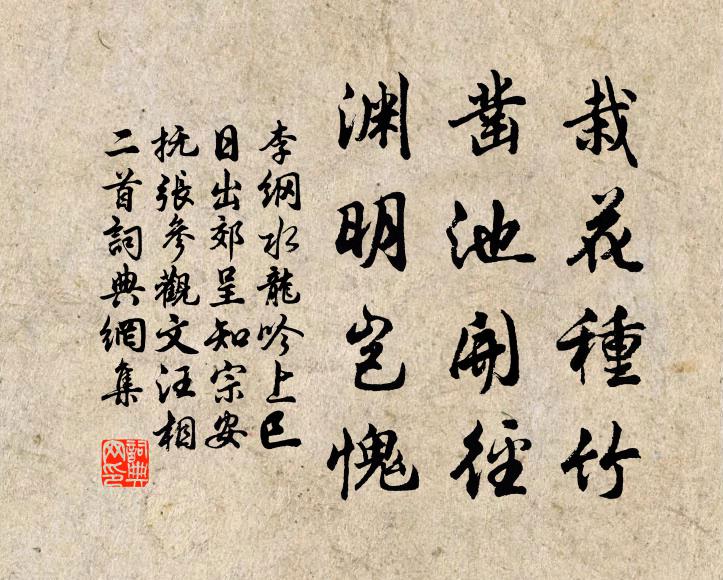 栽花種竹
凿池開徑
淵明岂愧
李綱水龍吟上巳
日出郊呈知宗安
抚張參觀文汪相
二首詞典網集
詞典网印